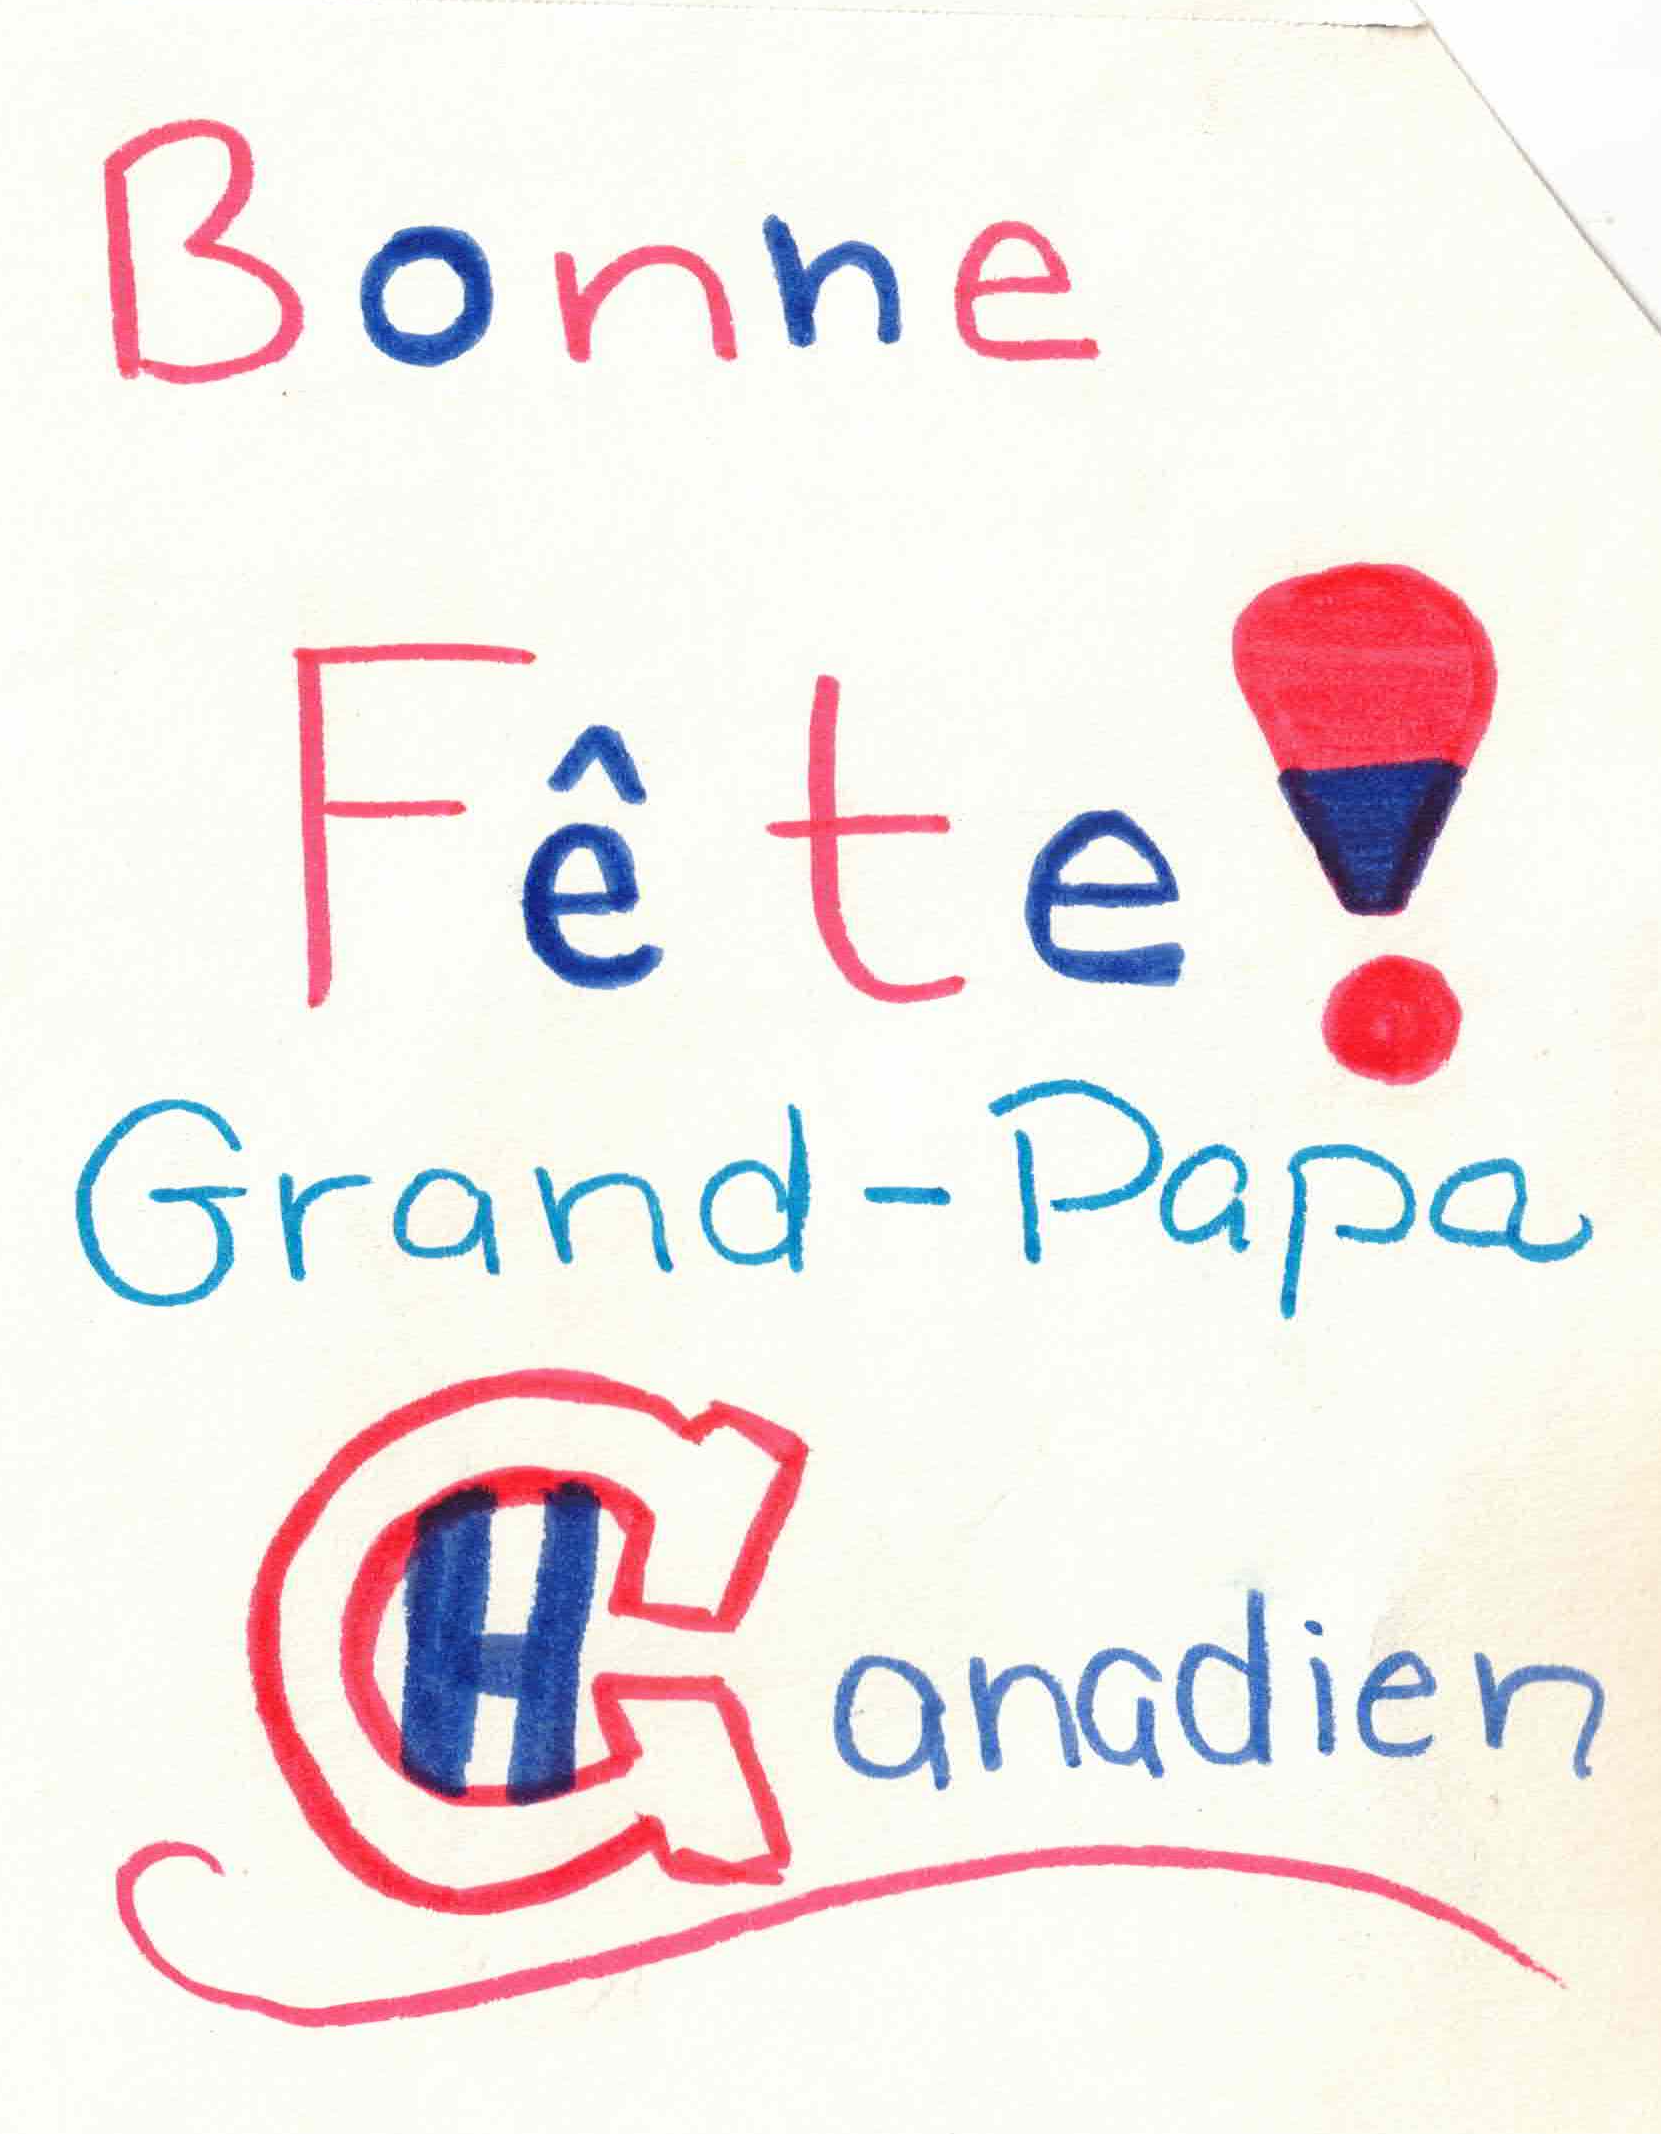 Bonne
Fête!
Grand-Papa
Canadien